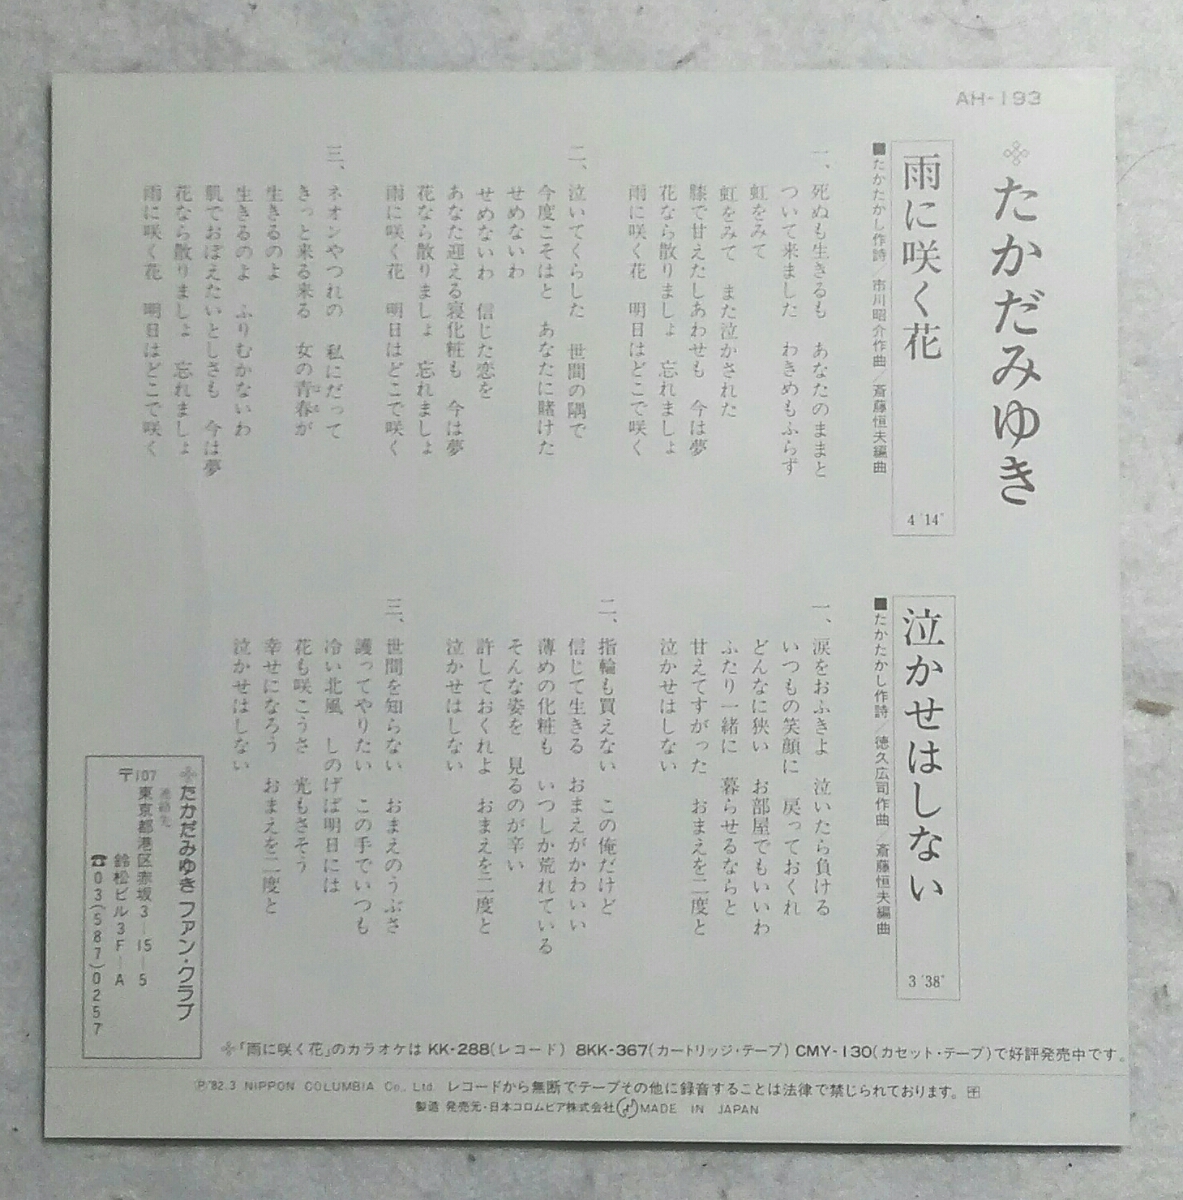 AH-193
たかだみゆき
雨に咲く花
4'14"
■たかたかし作詩／市川昭介作曲／斎藤恒夫編曲
一、死ぬも生きるも　あなたのままと
ついて来ました　わきめもふらず
虹をみて
虹をみて　また泣かされた
膝で甘えたしあわせも　今は夢
花なら散りましょ　忘れましょ
雨に咲く花　明日はどこで咲く
二、泣いてくらした　世間の隅で
今度こそはと　あなたに賭けた
せめないわ
せめないわ　信じた恋を
あなた迎える寝化粧も　今は夢
花なら散りましょ　忘れましょ
雨に咲く花　明日はどこで咲く
三、ネオンやつれの　私にだって
きっと来る来る　女の青春が
生きるのよ
生きるのよ　ふりむかないわ
肌でおぼえたいとしさも　今は夢
花なら散りましょ　忘れましょ
雨に咲く花　明日はどこで咲く
泣かせはしない
3'38"
■たかたかし作詩／徳久広司作曲／斎藤恒夫編曲
一、涙をおふきよ　泣いたら負ける
いつもの笑顔に　戻っておくれ
どんなに狭い　お部屋でもいいわ
ふたり一緒に　暮らせるならと
甘えてすがった　おまえを二度と
泣かせはしない
二、指輪も買えない　この俺だけど
信じて生きる　おまえがかわいい
薄めの化粧も　いつしか荒れている
そんな姿を　見るのが辛い
許しておくれよ　おまえを二度と
泣かせはしない
三、世間を知らない　おまえのうぶさ
護ってやりたい　この手でいつも
冷い北風　しのげば明日には
花も咲こうさ　光もさそう
幸せになろう　おまえを二度と
泣かせはしない
たかだみゆき ファン・クラブ
連絡先
〒107
東京都港区赤坂3－15－5
鈴松ビル3F－A
☎03(587)0257
「雨に咲く花」のカラオケは KK-288(レコード) 8KK-367(カートリッジ・テープ) CMY-130(カセット・テープ)で好評発売中です。
Ⓟ'82.3 NIPPON COLUMBIA Co., Ltd. レコードから無断でテープその他に録音することは法律で禁じられております。
製造 発売元・日本コロムビア株式会社 MADE IN JAPAN